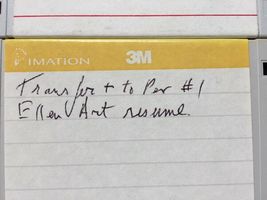 IMATION 3M
Transfer + to Per #1
Ellen Art resume.